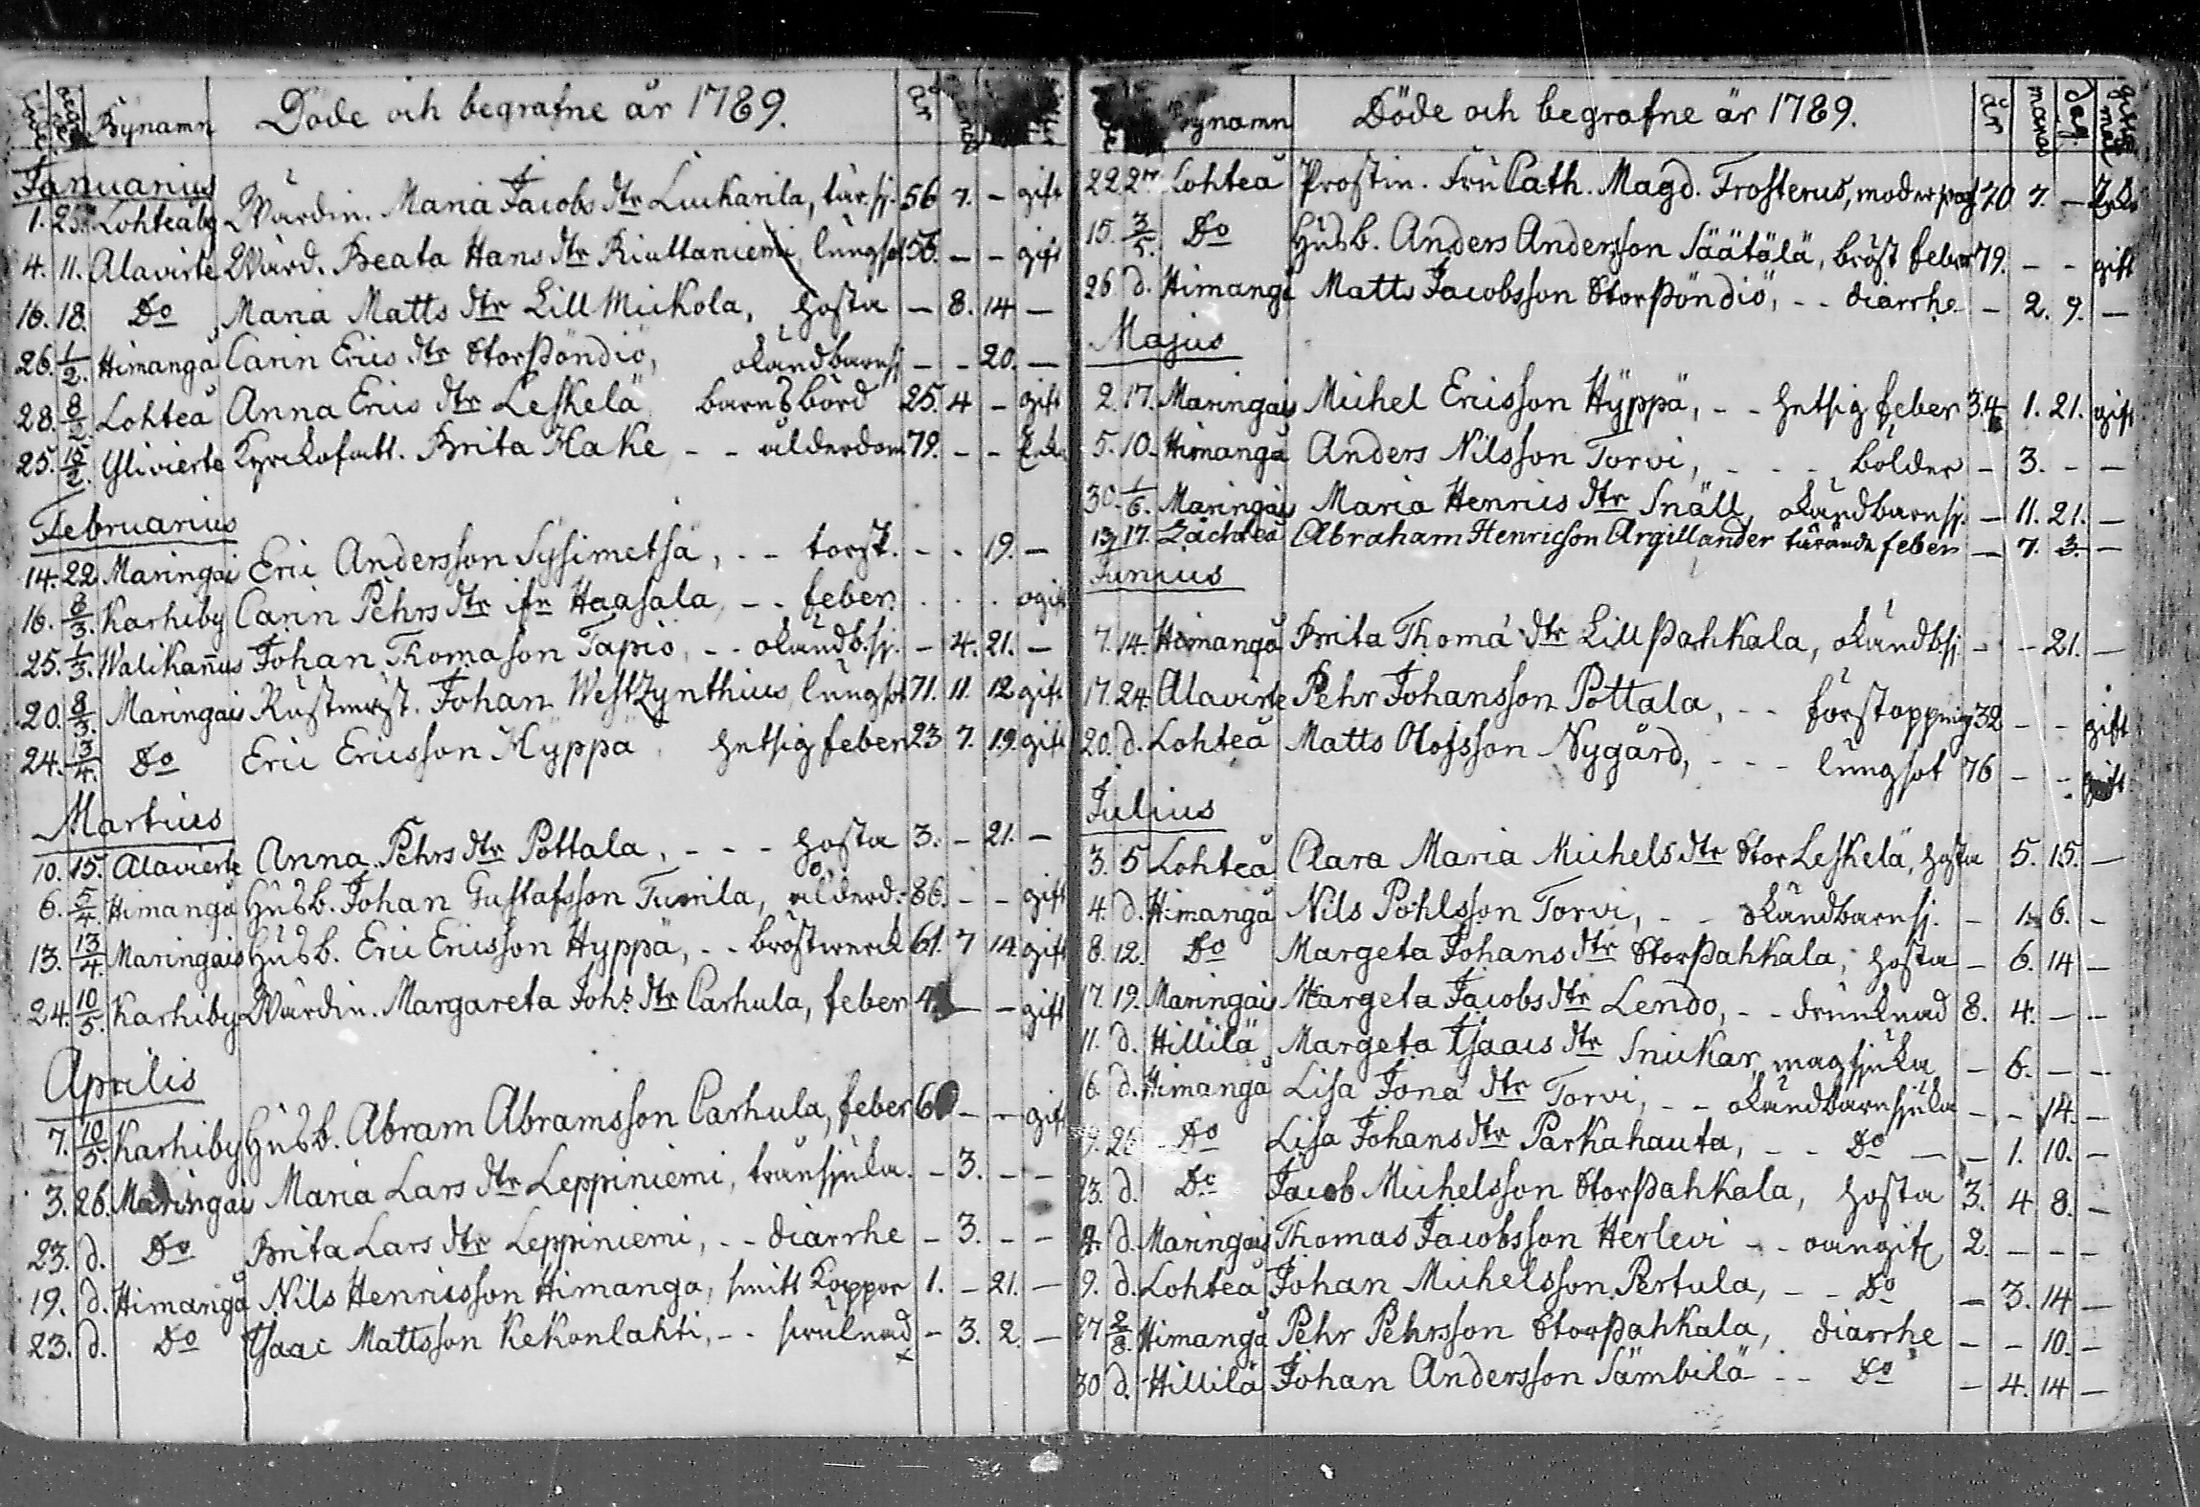 Bynamn Döde och begrafne år 1789. år
Januarius
1. 25. Lohteåby Wärdin. Maria Jacobs dtr Luckarila, tär.sj. 56 7. - gift
4. 11. Alavirte Wärd. Beata Hans dtr Riuttaniemi, lungsot 56. - - gift
16. 18. Do Maria Matts dtr Lill Mickola, hosta - 8. 14 -
26. 1/2. Himangå Carin Erics dtr Storpöndiö, okändbarnsj - - 20. -
28. 8/2. Lohteå Anna Erics dtr Leskelä barnsbörd 25. 4 - gift
25. 15/2. Ylivierte Kyrckofatt. Brita Kake - - ålderdom 79. - - Enka
Februarius
14. 22 Maringais Eric Andersson Sysimetsä, - - torsk. - - 19. -
16. 8/3. Karhiby Carin Pehrs dtr ifr Haasala, - - feber. . . . ogift
25. 1/3. Walikañus Johan Thomason Tapio, - - okändb.sj. - 4. 21. -
20. 8/3. Maringais Rustmäst. Johan WestZynthius, lungsot 71. 11. 12 gift
24. 3/4. Do Eric Ericsson Hyppä hetsig feber 23 7. 19. gift
Martius
10. 15. Alavierte Anna Pehrs dtr Pottala, - - - hosta 3. - 21. -
6. 5/4. Himangå Husb. Johan Gustafsson Tuorila, ålderd: 86. - - gift
13. 13/4. Maringais Husb. Eric Ericsson Hyppä, - - bröstwerck 61. 7 14. gift
24. 10/5. Karhiby Wärdin. Margareta Johs. dtr Carhula, feber - - gift
Aprilis
7. 10/5. Karhiby Husb. Abram Abramsson Carhula, feber - - gift
3. 26. Maringais Maria Lars dtr Leppiniemi, transjuka. - 3. - -
23. d. Do Brita Lars dtr Leppiniemi, - - diarrhe - 3. - -
19. d. Himangå Nils Henricsson Himanga, smitt koppor 1. - 21. -
23. d. Do Isaac Mattsson Kekonlahti, - - - 3. 2. -
Bynamn Döde och begrafne år 1789. år månad dag.
22 27. Lohteå Prostin. Fru Cath. Magd. Frosterus, moderpass 70 7. - Enka
15. 3/5. Do Husb. Anders Andersson Säätälä, bröst feber 79. - - gift
26. d. Himangå Matts Jacobsson Storpöndiö, - - diarrhe - 2. 9. -
Majus
2. 17. Maringais Michel Ericsson Hyppä, - - hetsig feber 34 1. 21. gift
5. 10. Himangå Anders Nilsson Torvi, - - - bölder - 3. - -
30. 1/6. Maringais Maria Henrics dtr Snäll, okändbarnsj. - 11. 21. -
13 17. Lächteå Abraham Henricson Argillander tärande feber - 7. 3. -
Junius
7. 14. Himangå Brita Thomæ dtr Lillpahkala, okändbsj - - 21. -
17. 24. Alavirte Pehr Johansson Pottala, - - förstoppning 32 - - gift
20. d. Lohteå Matts Olofsson Nygård, - - - lungsot 76 - - gift
Julius
3. 5 Lohteå Clara Maria Michels dtr Stor Leskelä, hosta 5. 15. -
4. d. Himangå Nils Pohlsson Torvi, - - okändbarnsj. - 1. 6. -
8. 12. Do Margeta Johans dtr Storpahkala, hosta - 6. 14 -
17. 19. Maringais Margeta Jacobs dtr Lendo, - - drunknad 8. 4. - -
11. d. Hillilä Margeta Isaacs dtr Snickar, magsjuka - 6. - -
6. d. Himangå Lisa Jona dtr Torvi, - - okändbarnsjuka - - 14. -
9. 26 Do Lisa Johans dtr Parkahauta, - - Do - - 1. 10. -
23. d. Do Jacob Michelsson Storpahkala, hosta 3. 4 8. -
2. d. Maringais Thomas Jacobsson Herlevi - - oangifv 2. - - -
9. d. Lohteå Johan Michelsson Pertula, - - Do - 3. 14 -
27 2/8. Himangå Pehr Pehrsson Storpahkala, diarrhe - - 10. -
30 d. Hillilä Johan Andersson Sämbilä - - Do - 4. 14 -